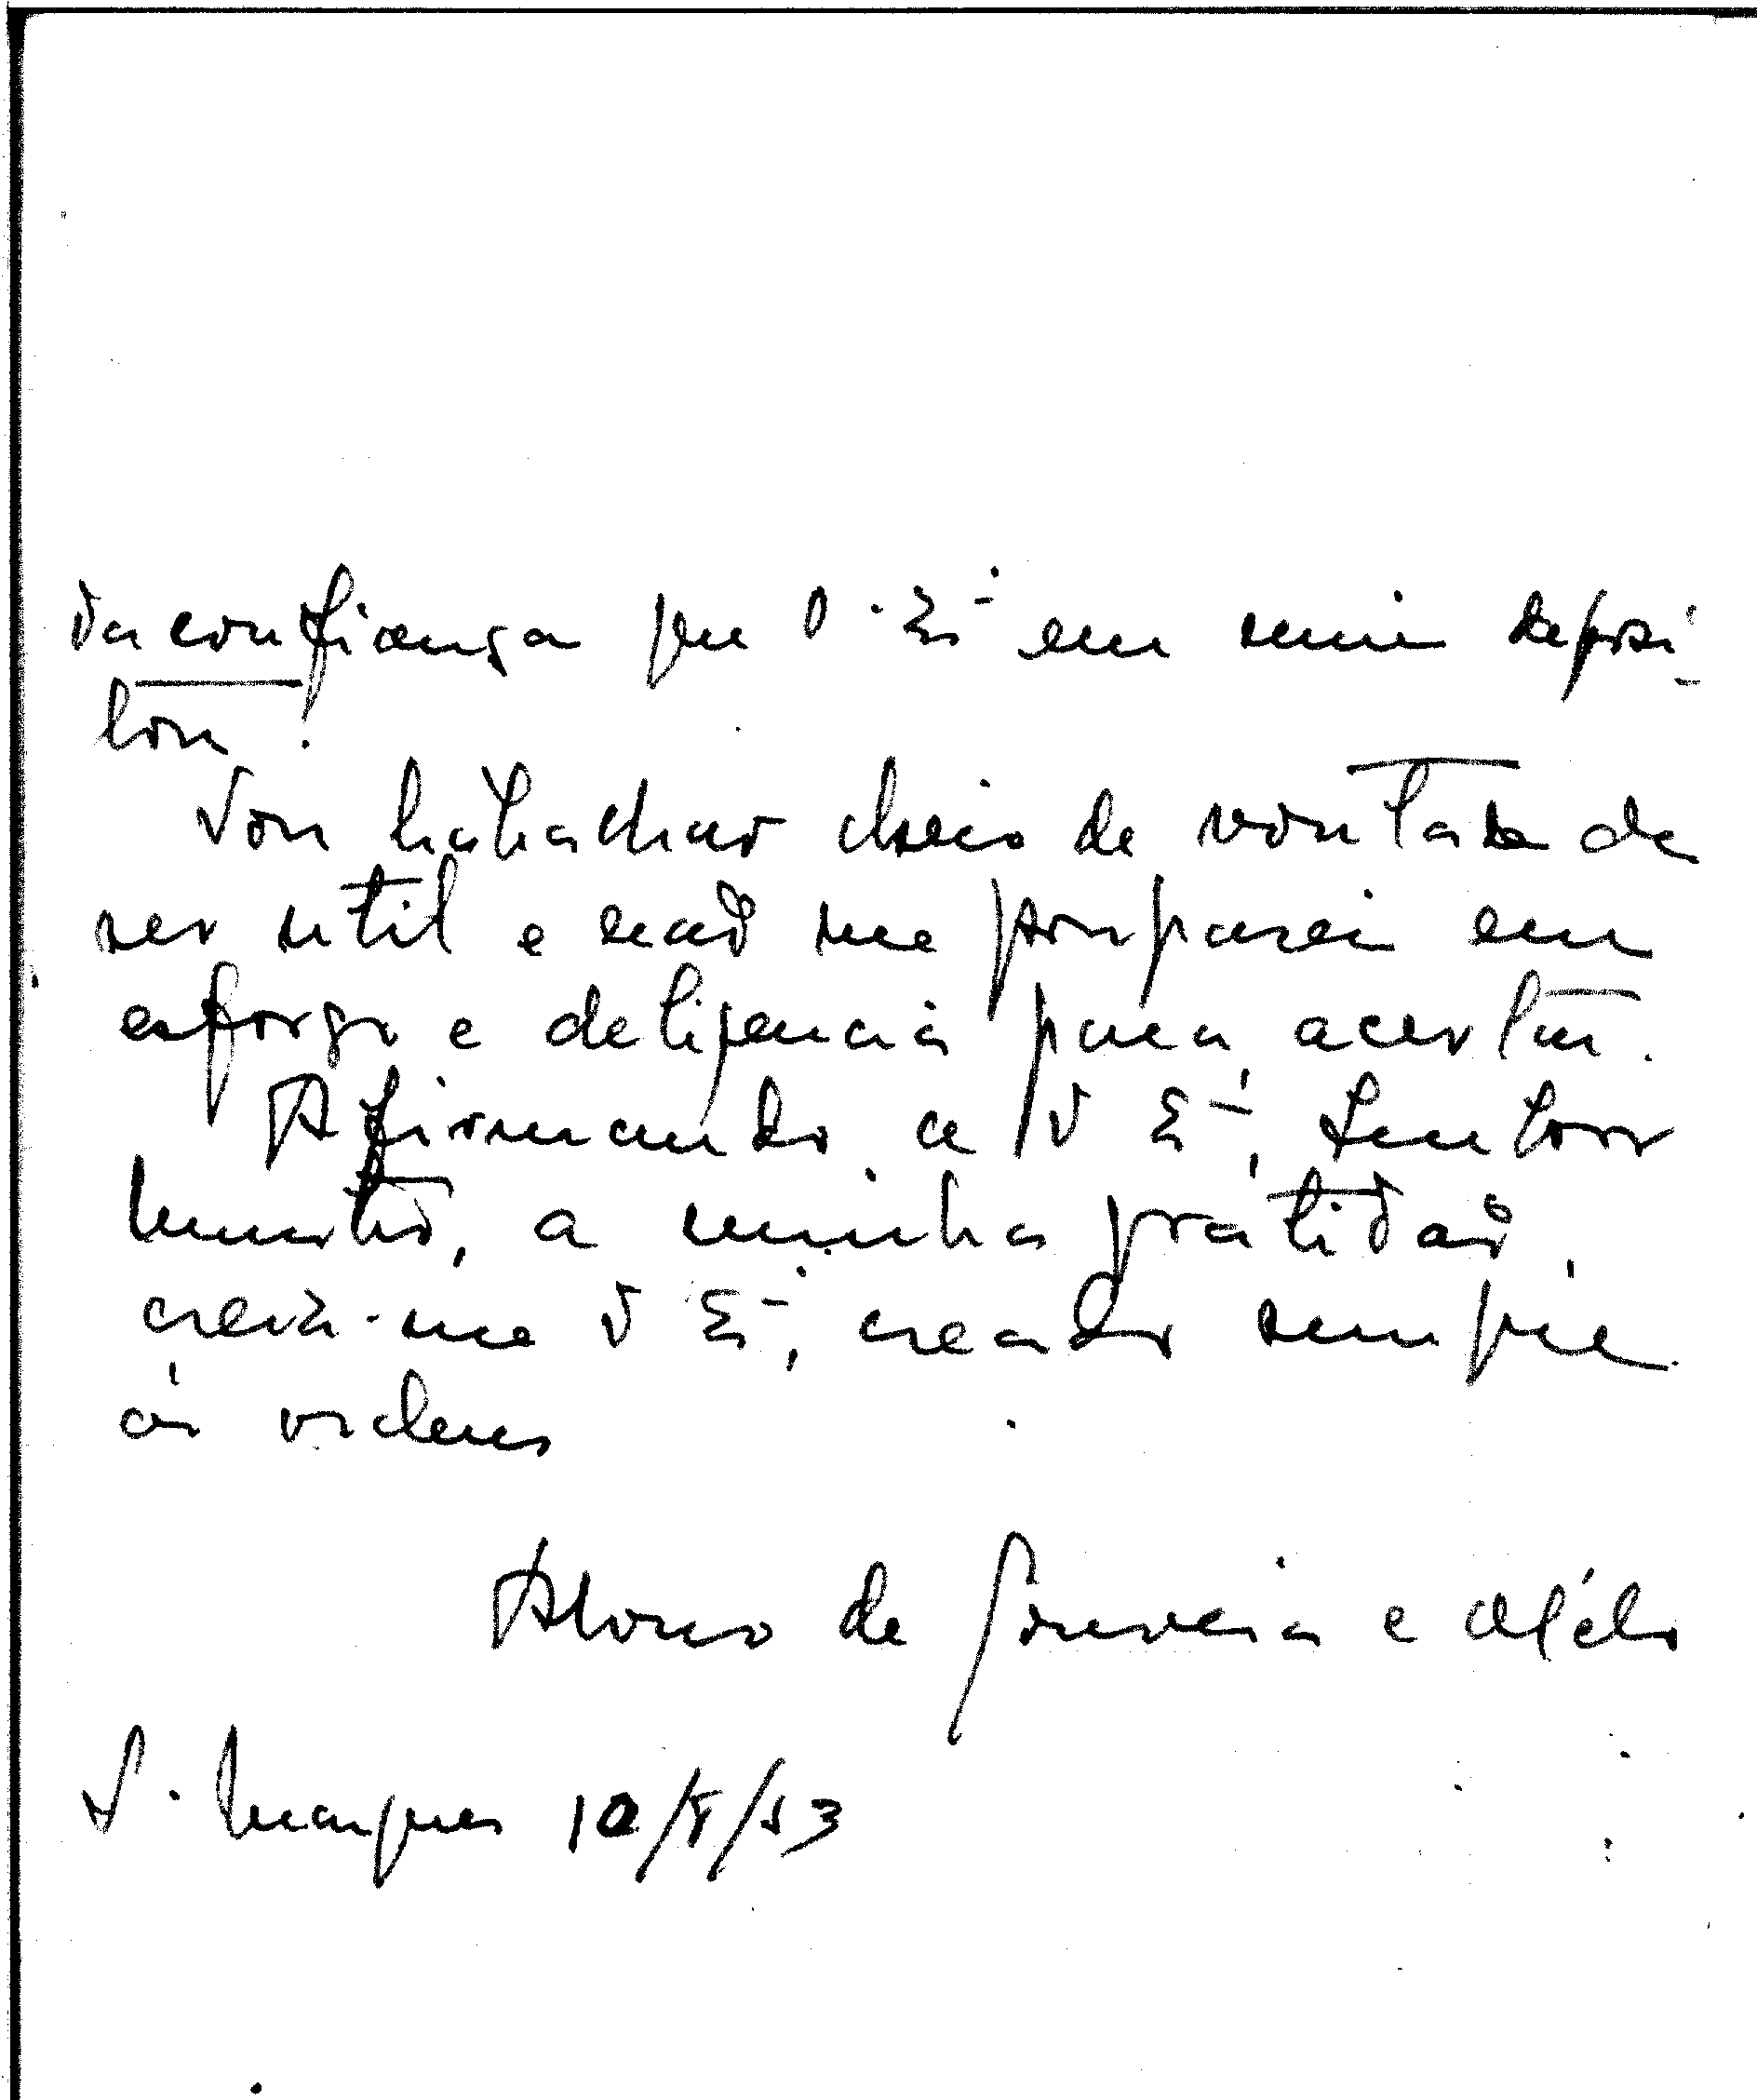 da confiança que V. Exª em mim deposi-
tou.
Vou trabalhar cheio de vontade de
ser util e não me pouparei em
esforço e deligencia para acertar.
Afirmando a V Exª, Senhor
Ministro, a minha gratidão,
creia-me V Exª, creado sempre
ás ordens
Afonso de Gouveia e Mélo
L. Marques 10/ /53